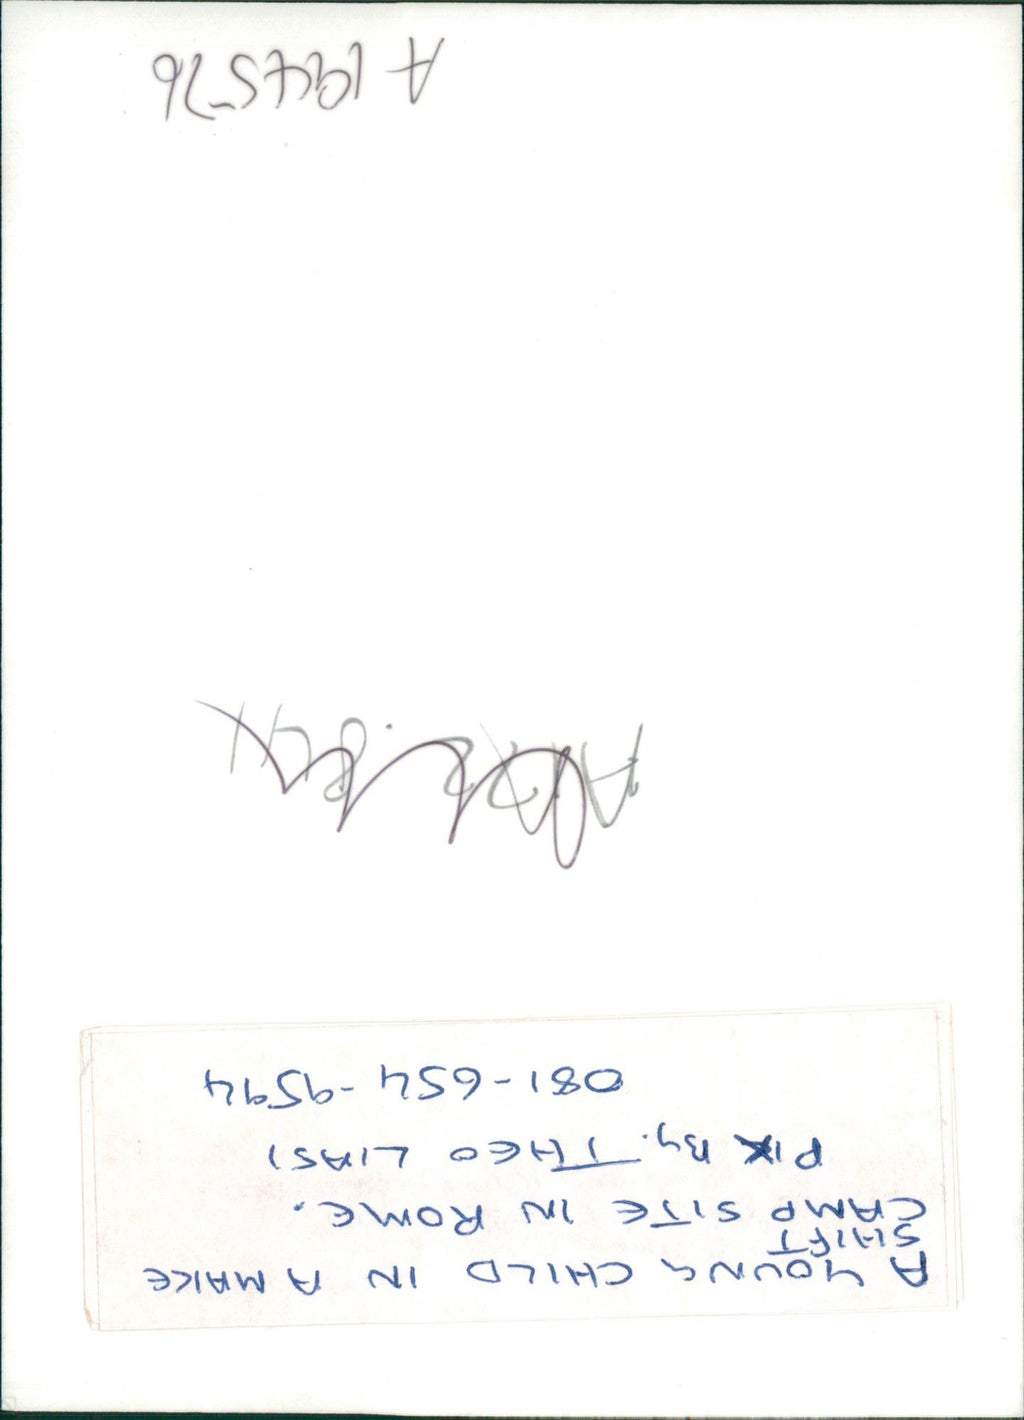 A YOUNG CHILD IN A MAKE
SHIFT
CAMP SITE IN ROME.
PIX By. THEO LIASI
081-654-9594